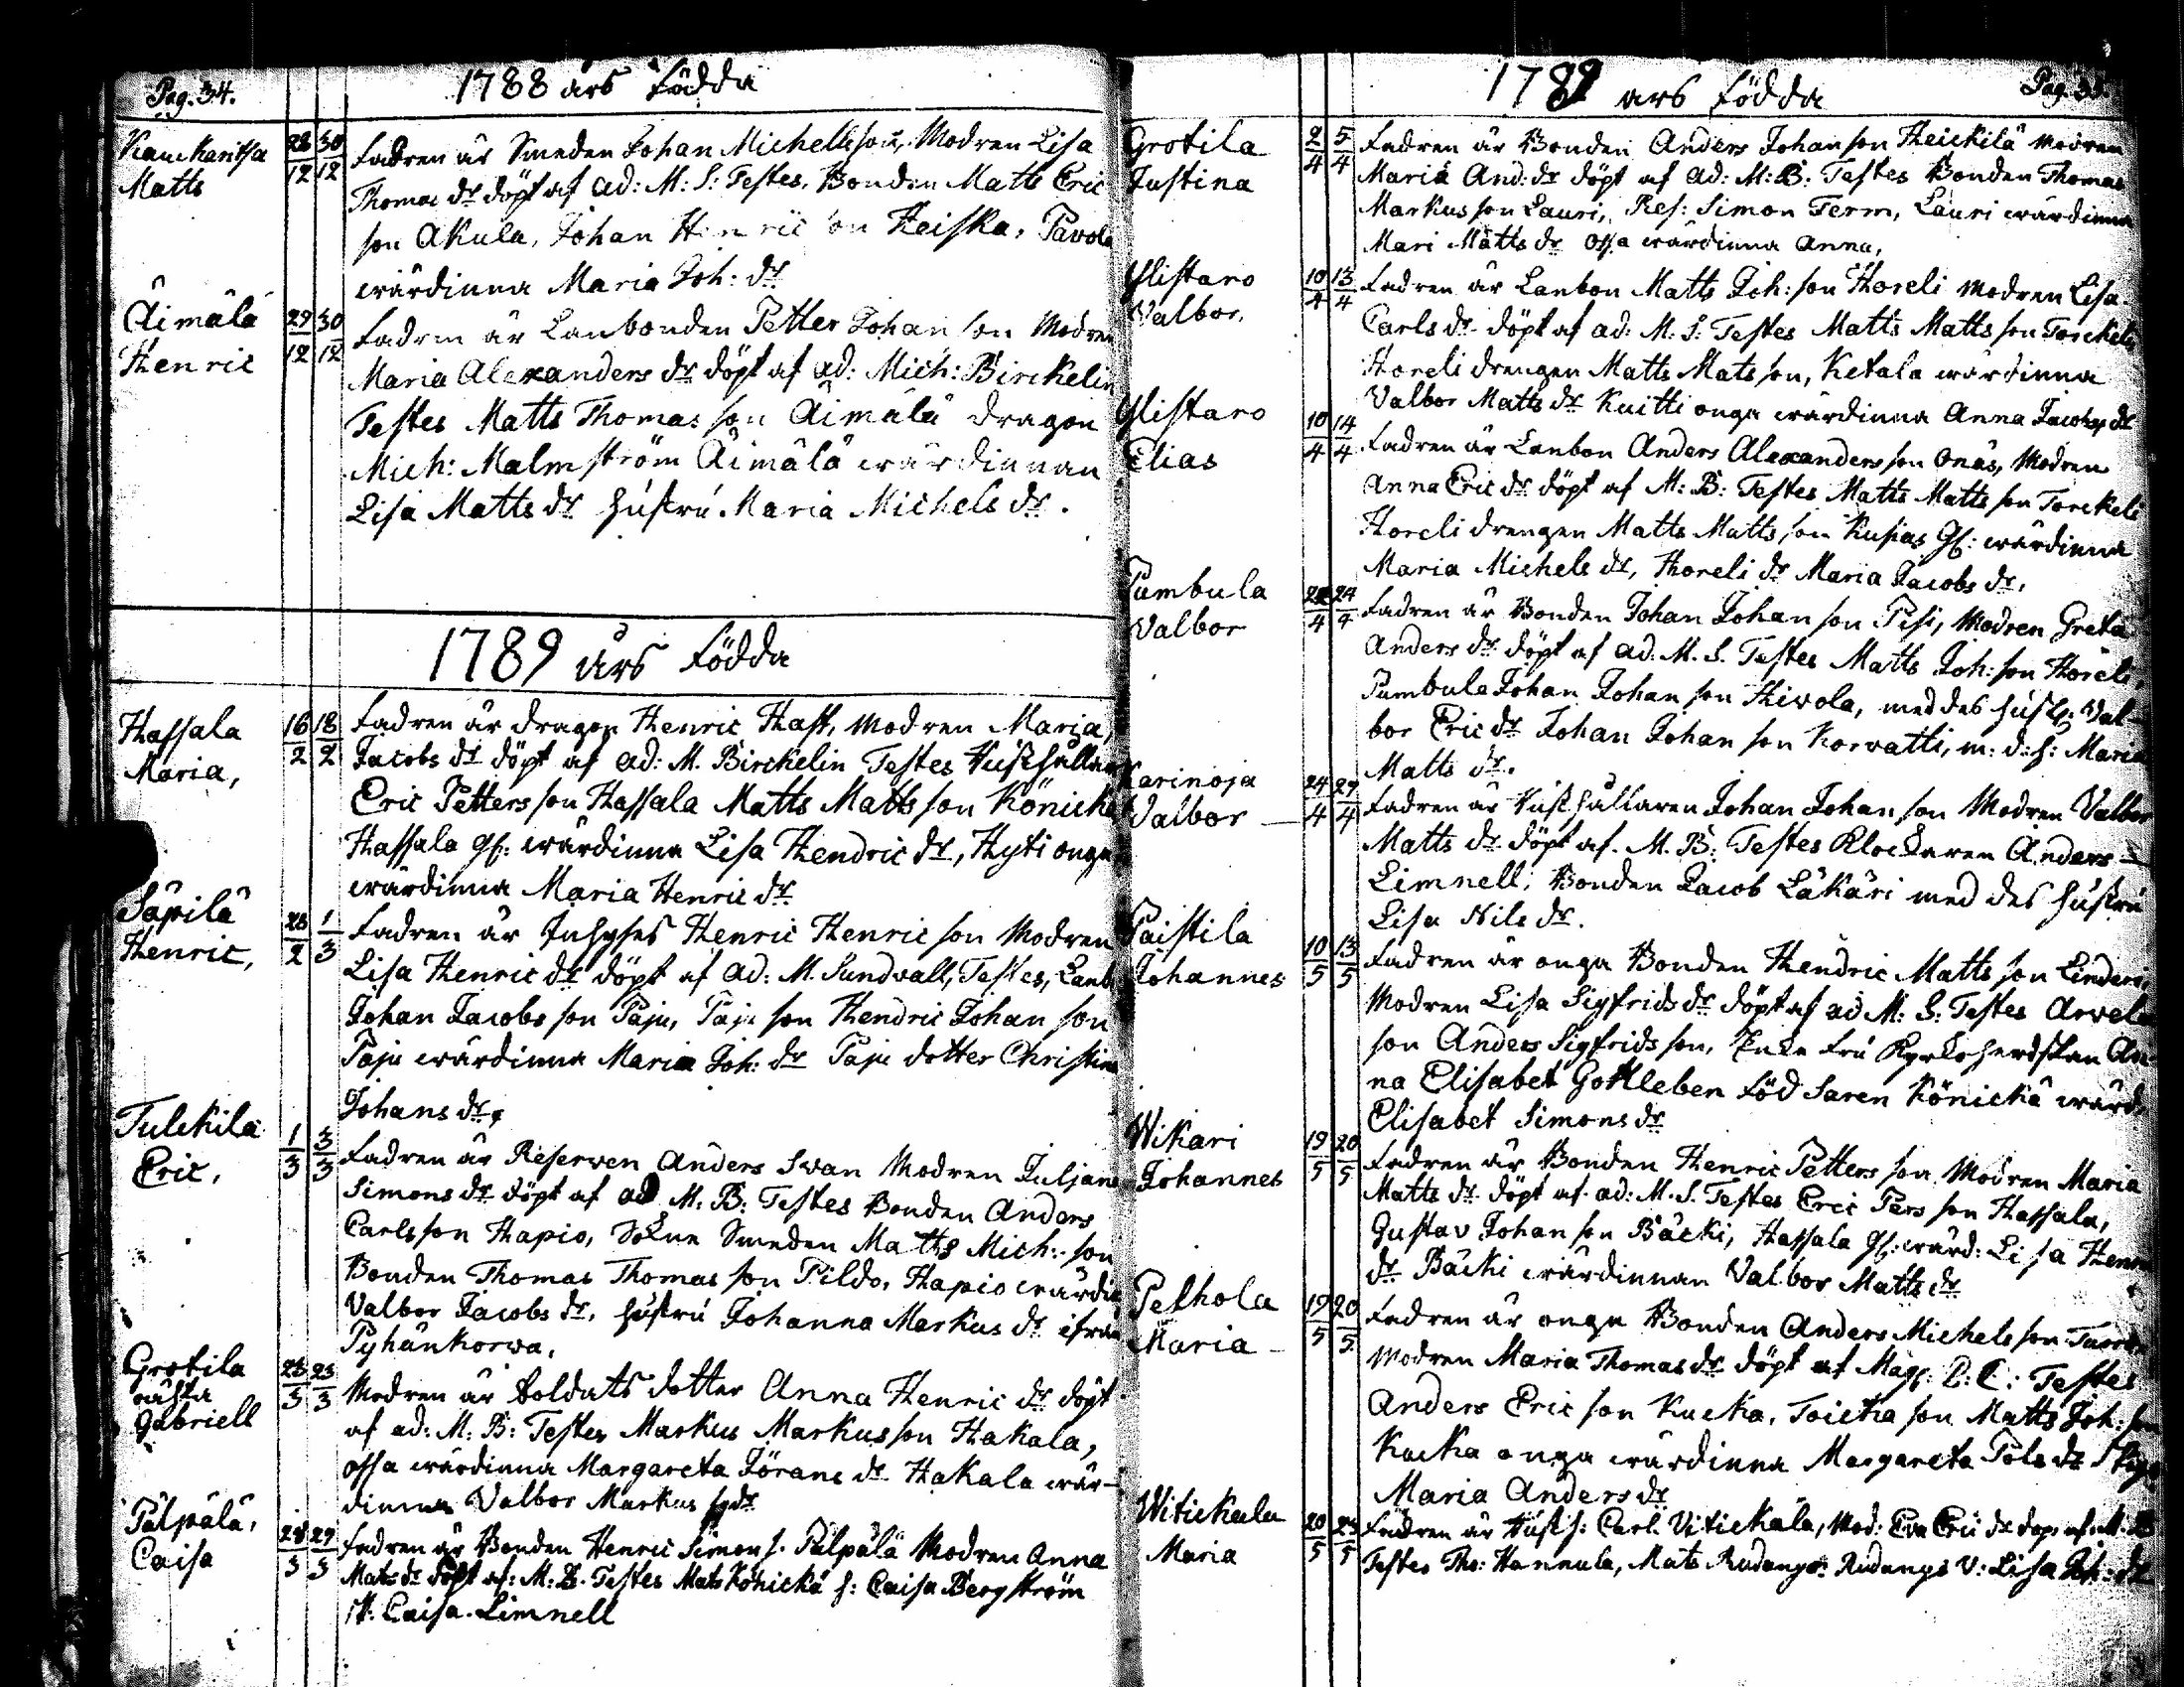 Pag. 34.
1788 års Födda
Kauckaritsa
Matts
28/12 30/12
Fadren är Smeden Johan Michellsson, Modren Lisa
Thomas dr döpt af ad: M: S: Testes, Bonden Matts Eric
son Akula, Johan Henric son Keiska, Pavola
wärdinna Maria Joh: dr
Äimälä
Henric
29/12 30/12
Fadren är Lanbonden Petter Johan son Modren
Maria Alexanders dr döpt af ad: Mich: Birckelin
Testes Matts Thomas son Äimälä Dragon
Mich: Malmström Äimälä wärdinnan
Lisa Matts dr hustru Maria Michels dr.
1789 års Födda
Hassala
Maria,
16/2 18/2
Fadren är dragon Henric Hast, Modren Maria,
Jacobs dr döpt af ad: M. Birckelin Testes Rusthållar
Eric Petters son Hassala Matts Matts son Könicke
Hassala gl: wärdinna Lisa Hendric dr, Hyti onga
wärdinna Maria Henric dr
Säpilä
Henric,
28/2 1/3
Fadren är Inhyses Henric Henric son Modren
Lisa Henric dr döpt af ad: M. Sundvall, Testes, Lanb
Johan Jacobs son Paju, Paju son Hendric Johan son
Paju wärdinna Maria Joh: dr Paju dotter Christina
Johans dr,
Tulckila
Eric,
1/3 3/3
Fadren är Reserven Anders Swan Modren Juljana
Simons dr döpt af ad M: B: Testes Bonden Anders
Carlsson Hapio, Sokne Smeden Matts Mich: son
Bonden Thomas Thomas son Pildo, Hapio wärdin
Valbor Jacobs dr, hustru Johanna Markus dr ifrån
Pyhänkorwa,
Grotila
oäkta
Gabriell
23/3 25/3
Modren är Soldats dotter Anna Henric dr döpt
af ad: M: B: Testes Markus Markus son Hakala,
Ossa wärdinna Margareta Jörans dr Hakala wär-
dinna Valbor Markus dr
Pälpälä,
Caisa
28/3 29/3
Fadren är Bonden Henric Simon s. Pälpälä Modren Anna
Mats dr döpt af: M: B. Testes Mats Könickä h: Caisa Bergström
it: Caisa Limnell
1789 ars Födda
Pag. 35.
Grotila
Justina
2/4 5/4
Fadren är Bonden Anders Johanson Heickilä Modren
Maria And: dr döpt af ad: M: B: Testes Bonden Thomas
Markus son Lauri, Res: Simon Term, Lauri wärdinna
Mari Matts dr Ossa wärdinna Anna,
Ylistaro
Valbor,
10/4 13/4
Fadren är Lanbon Matts Joh: son Horeli Modren Lisa
Carls dr döpt af ad: M. S: Testes Matts Matts son Torckeli
Horeli drengen Matts Mats son, Ketala wärdinna
Valbor Matts dr Kuitti onga wärdinna Anna Jacobs dr
Ylistaro
Elias
10/4 14/4
Fadren är Lanbon Anders Alexanders son Onäs, Modren
Anna Eric dr döpt af M: B: Testes Matts Matts son Torckeli
Horeli drengen Matts Matts son Kupias gl: wärdinna
Maria Michels dr, Horeli dr Maria Jacobs dr,
Pumbula
Valbor
22/4 24/4
Fadren är Bonden Johan Johan son Pisi, Modren Greta
Anders dr döpt af ad. M. S. Testes Matts Joh: son Horeli,
Pumbula Johan Johan son Hivola, med des hust: Val-
bor Eric dr Johan Johan son Korvatti, m: d: h: Maria
Matts dr.
Karinoja
Valbor
24/4 27/4
Fadren är Rusthållaren Johan Johan son Modren Valbor
Matts dr döpt af. M. B: Testes Klockaren Anders
Limnell, Bonden Jacob Läkäri med des hustru
Lisa Nils dr.
Paistila
Johannes
10/5 13/5
Fadren är onga Bonden Hendric Matts son Linderi,
Modren Lisa Sigfrids dr döpt af ad M: S: Testes Arvela
son Anders Sigfrids son, Enke Fru Kyrkoherdskan An-
na Elisabet Gottleben Föd Saren Könickä wärd.
Elisabet Simons dr
Wikari
Johannes
19/5 20/5
Fadren är Bonden Henric Petters son Modren Maria
Matts dr döpt af ad: M. S. Testes Eric Pers son Hassala,
Gustav Johan son Bäcki, Hassala gl: wärd: Lisa Henric
dr Bäcki wärdinnan Valbor Matts dr
Pelhola
Maria
19/5 20/5
Fadren är onga Bonden Anders Michels son
Modren Maria Thomas dr döpt af Mag: Testes
Anders Eric son Kucka, Toicka son Matts Joh: son
Kucka onga wärdinna Margareta Pols dr
Maria Anders dr
Witickala
Maria
20/5 24/5
Fadren är Rusth: Carl Vitickala, Mod: Eva Eric dr döp. af M. B
Testes Tho: Hannula, Mats Rudangs. Rudangs V: Lisa Joh: dr